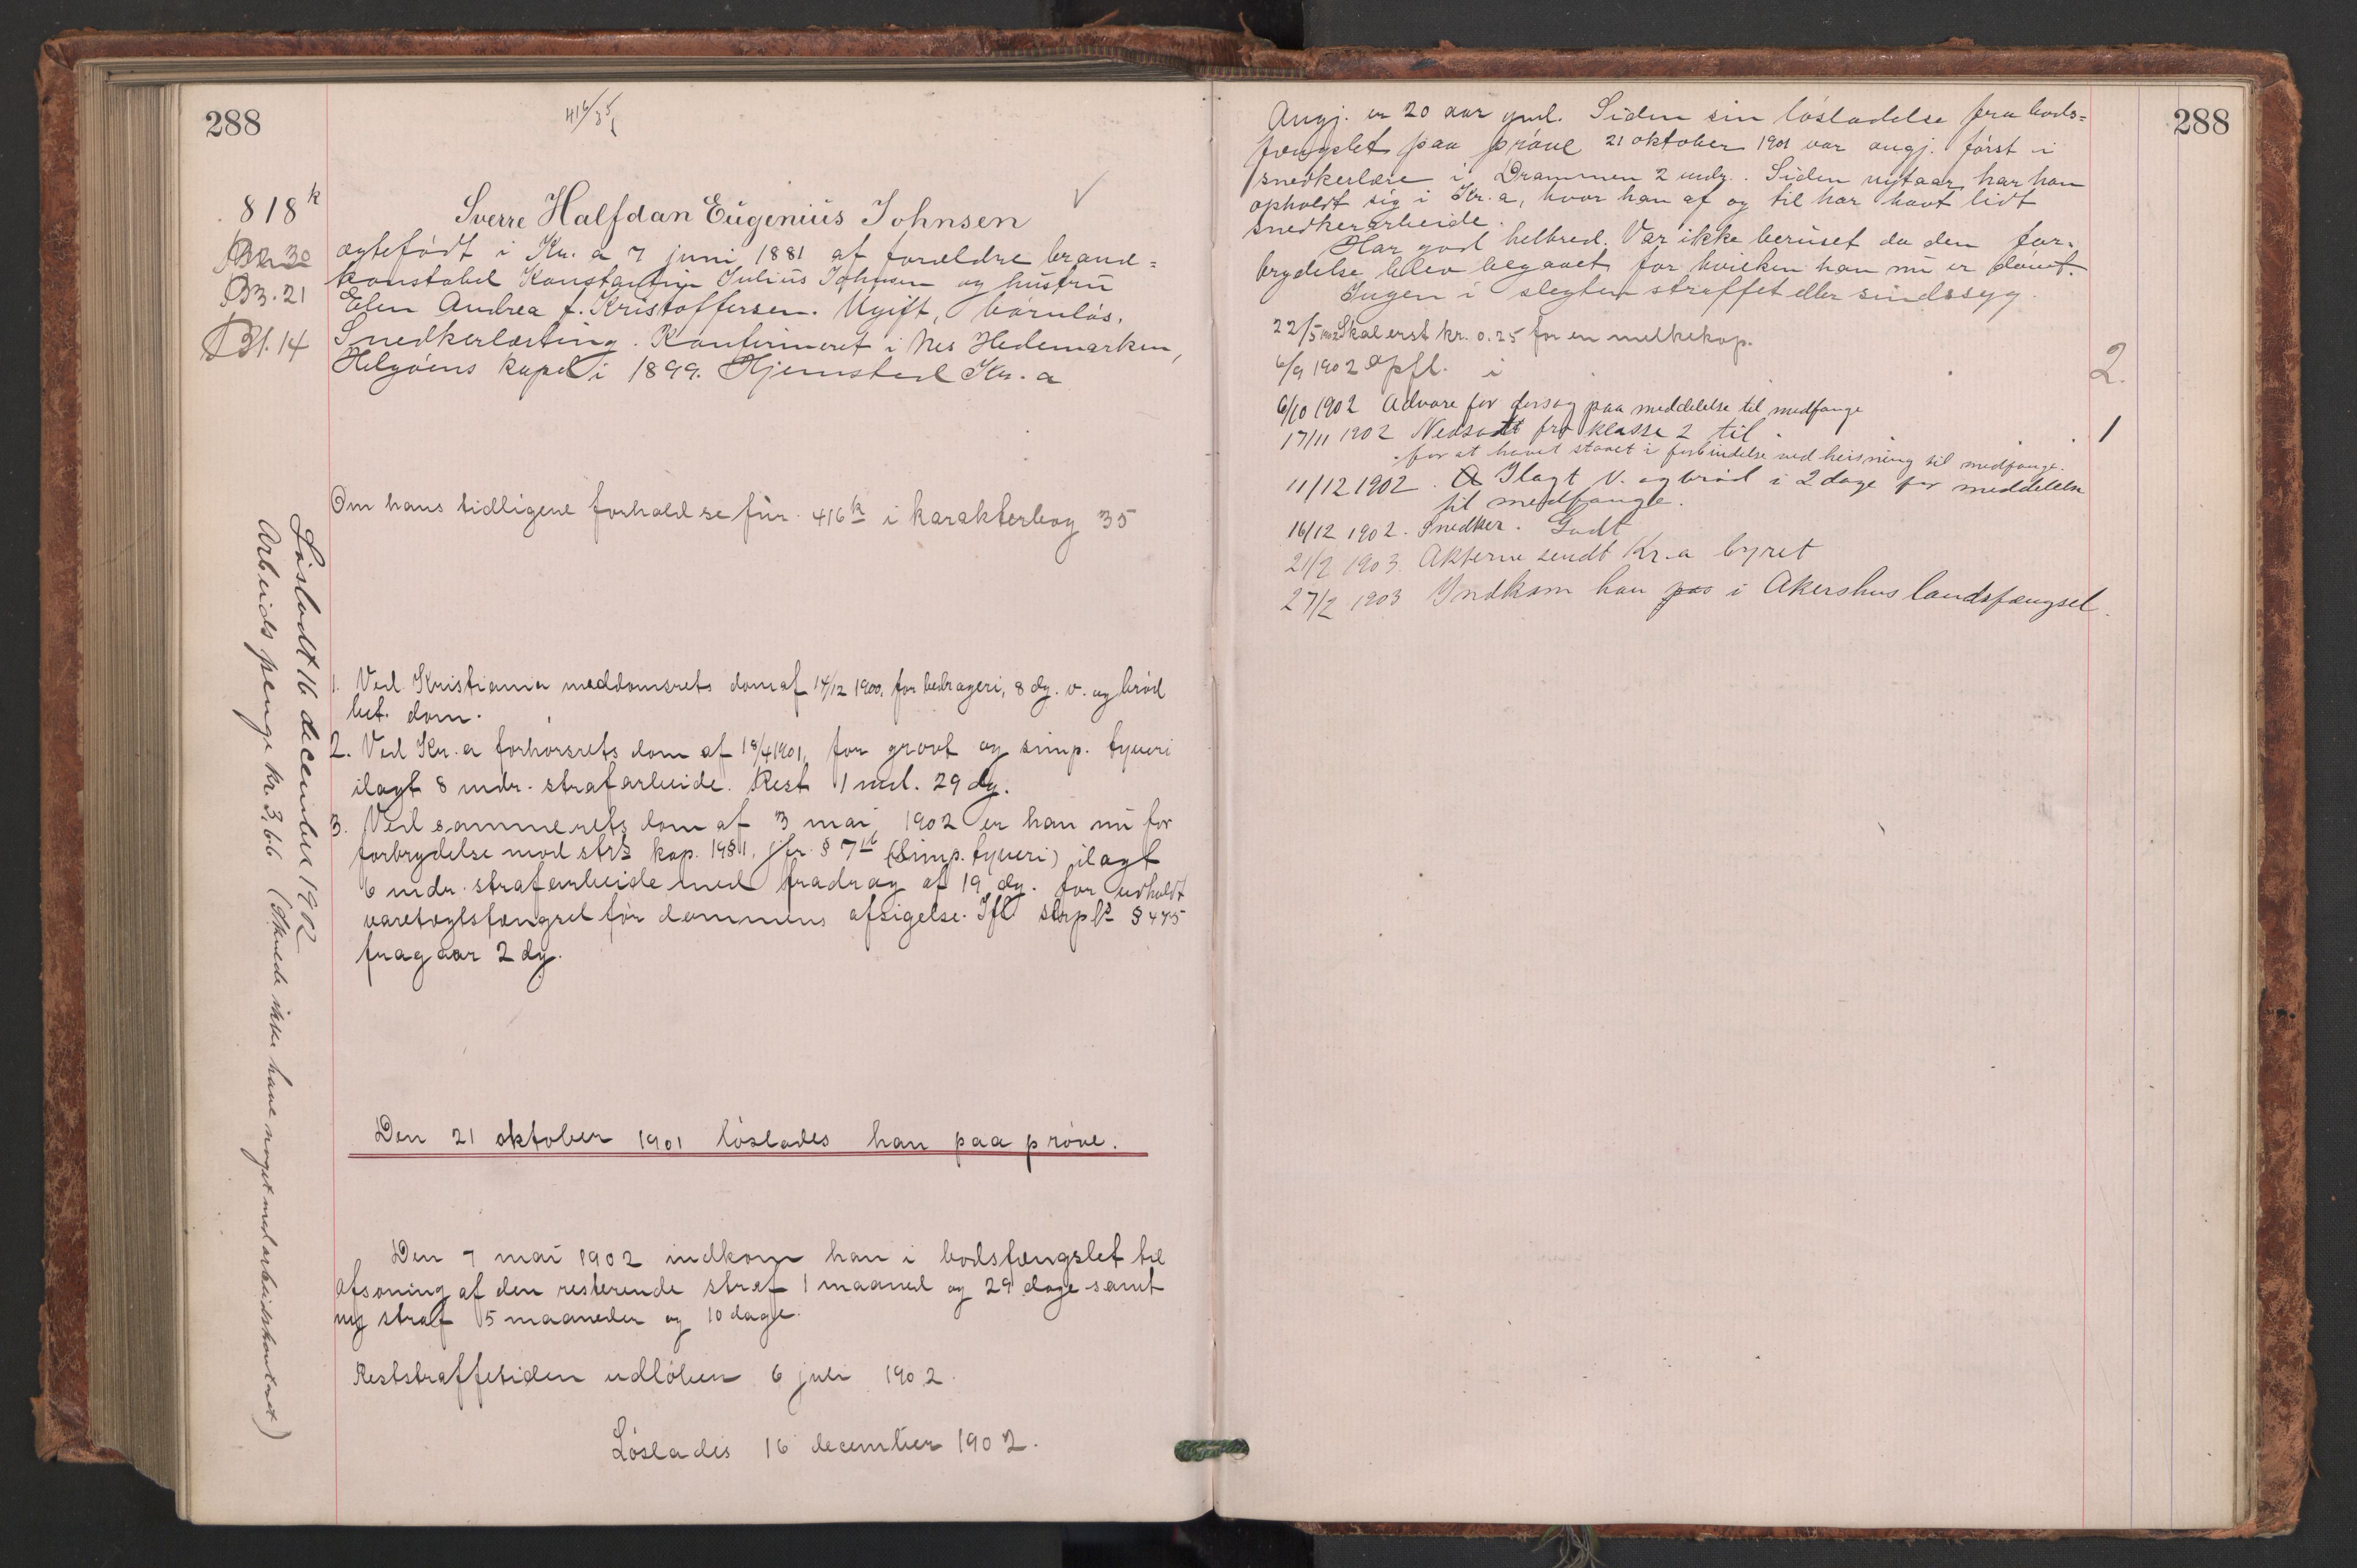 288
416/35
818k
Sverre Halfdan Eugenius Johnsen
B2. 30
B3. 21
B1. 14
ægtefödt i Kr.a 7 juni 1881 af forældre brand=
konstabel Konstantin Julius Johnsen og hustru
Elen Andrea f. Kristoffersen. Ugift, börnlös.
Snedkerlærling. Konfirmeret i Nes Hedemarken,
Helgöens kapel i 1899. Hjemsted Kr.a
Om hans tidligere forhold se fnr. 416k i karakterbog 35
Lösladt 16 december 1902
Arbeidspenge kr. 3,66 (Ønskede ikke have noget med arbeidskontoret)
1. Ved Kristiania meddomsrets dom af 14/12 1900, for bedrageri, 8 dg. v. og bröd
bet. dom.
2. Ved Kr.a forhörsrets dom af 18/4 1901, for grovt og simp. tyveri
ilagt 8 mdr. strafarbeide. Rest 1 md. 29 dg.
3. Ved sammerets dom af 3 mai 1902 er han nu for
forbrydelse mod strl kap. 19 § 1, jfr. § 7 (simp. tyveri) ilagt
6 mdr. strafarbeide med fradrag af 19 dg. for udholdt
varetægtsfængsel för dommens afsigelse. Ifl strpl § 475
fragaar 2 dg.
Den 21 oktober 1901 löslades han paa pröve.
Den 7 mai 1902 indkom han i bodsfængslet til
afsoning af den resterende straf 1 maaned og 29 dage samt
ny straf 5 maaneder og 10 dage.
Reststraffetiden udlöben 6 juli 1902.
Löslades 16 december 1902.
288
Angj. er 20 aar gml. Siden sin lösladelse fra bods=
fængslet paa pröve 21 oktober 1901 var angj. först i
snedkerlære i Drammen 2 mdr. Siden nytaar har han
opholdt sig i Kr.a, hvor han af og til har havt lidt
snedkerarbeide.
Har god helbred. Var ikke beruset da den for=
brydelse blev begaaet for hvilken han nu er dömt.
Ingen i slegten straffet eller sindssyg.
22/5 1902 Skal erst kr. 0.25 for en melkekop.
6/9 1902 Opfl. i 2.
6/10 1902 Advare for forsøg paa meddelelse til medfange
17/11 1902 Nedsat fra klasse 2 til 1
for at havet staaet i forbindelse ved heisning til medfange.
11/12 1902. Ilagt V. og bröd i 2 dage for meddelelse
til medfange.
16/12 1902. Snedker. Godt
21/2 1903. Akterne sendt Kr.a byret
27/2 1903 Indkom han paa i Akershus landsfængsel.